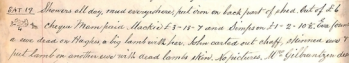 SAT 17. Showers all day, read everywhere, put own on back part of shed. Out of £6
cheque Mem paid Mackie £3-15-7 and Simpson £1-2-10½, Ewe found
a ewe dead on Hagies, a big lamb with her. John carted out chaff, skinned ewe &
put lamb on another ewe with dead lambs skin. No pictures. Mrs Gilbertson